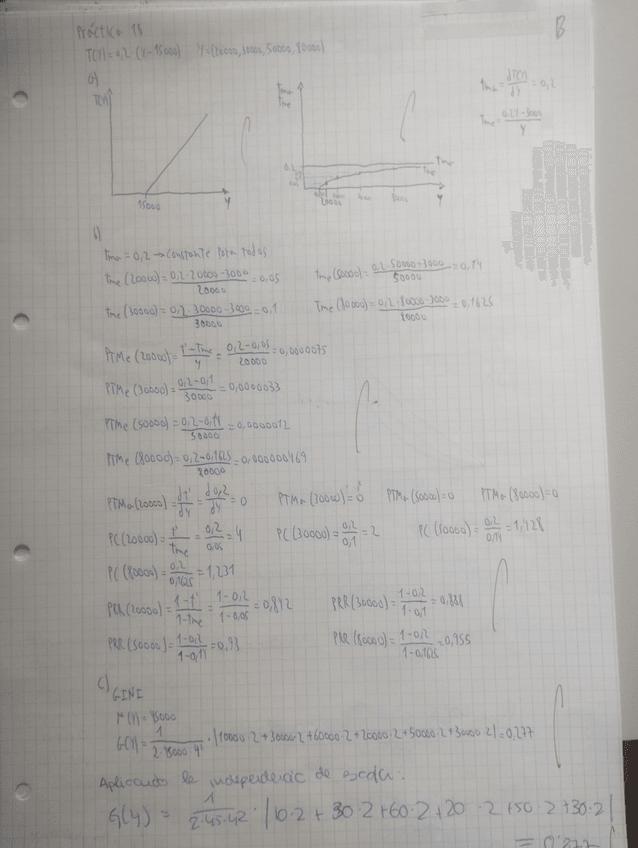 Práctica 15
T(Y)=0,2·(Y-15000) Y=(20000,30000,50000,80000)
B
a)
T(Y)
15000
Y
tma
tme
0.2
tma
tme
20000
Y
tma = dT(Y)/dY = 0,2
Tme = 0,2Y-3000/Y
b)
tma = 0,2 → constante para todos
tme(20000) = 0,2·20000-3000/20000 = 0,05
tme(50000) = 0,2·50000-3000/50000 = 0,14
tme(30000) = 0,2·30000-3000/30000 = 0,1
Tme(80000) = 0,2·80000-3000/80000 = 0,1625
PTMe(20000) = t'-tme/Y = 0,2-0,05/20000 = 0,0000075
PTMe(30000) = 0,2-0,1/30000 = 0,0000033
PTMe(50000) = 0,2-0,14/50000 = 0,0000012
PTMe(80000) = 0,2-0,1625/80000 = 0,000000469
PTMa(20000) = dt'/dY = d0,2/dY = 0 PTMa(30000) = 0 PTMa(50000) = 0 PTMa(80000) = 0
PC(20000) = t'/tme = 0,2/0,05 = 4 PC(30000) = 0,2/0,1 = 2 PC(50000) = 0,2/0,14 = 1,428
PC(80000) = 0,2/0,1625 = 1,231
PRR(20000) = 1-t'/1-tme = 1-0,2/1-0,05 = 0,842 PRR(30000) = 1-0,2/1-0,1 = 0,888
PRR(50000) = 1-0,2/1-0,14 = 0,93 PRR(80000) = 1-0,2/1-0,1625 = 0,955
c) GINI
μ(Y) = 45000
G(Y) = 1/2·45000·4² · |10000·2+30000·2+60000·2+20000·2+50000·2+30000·2| = 0,277
Aplicando la independencia de escala:
G(Y) = 1/2·45·42 · |10·2 + 30·2 + 60·2 + 20·2 + 50·2 + 30·2|
= 0,277